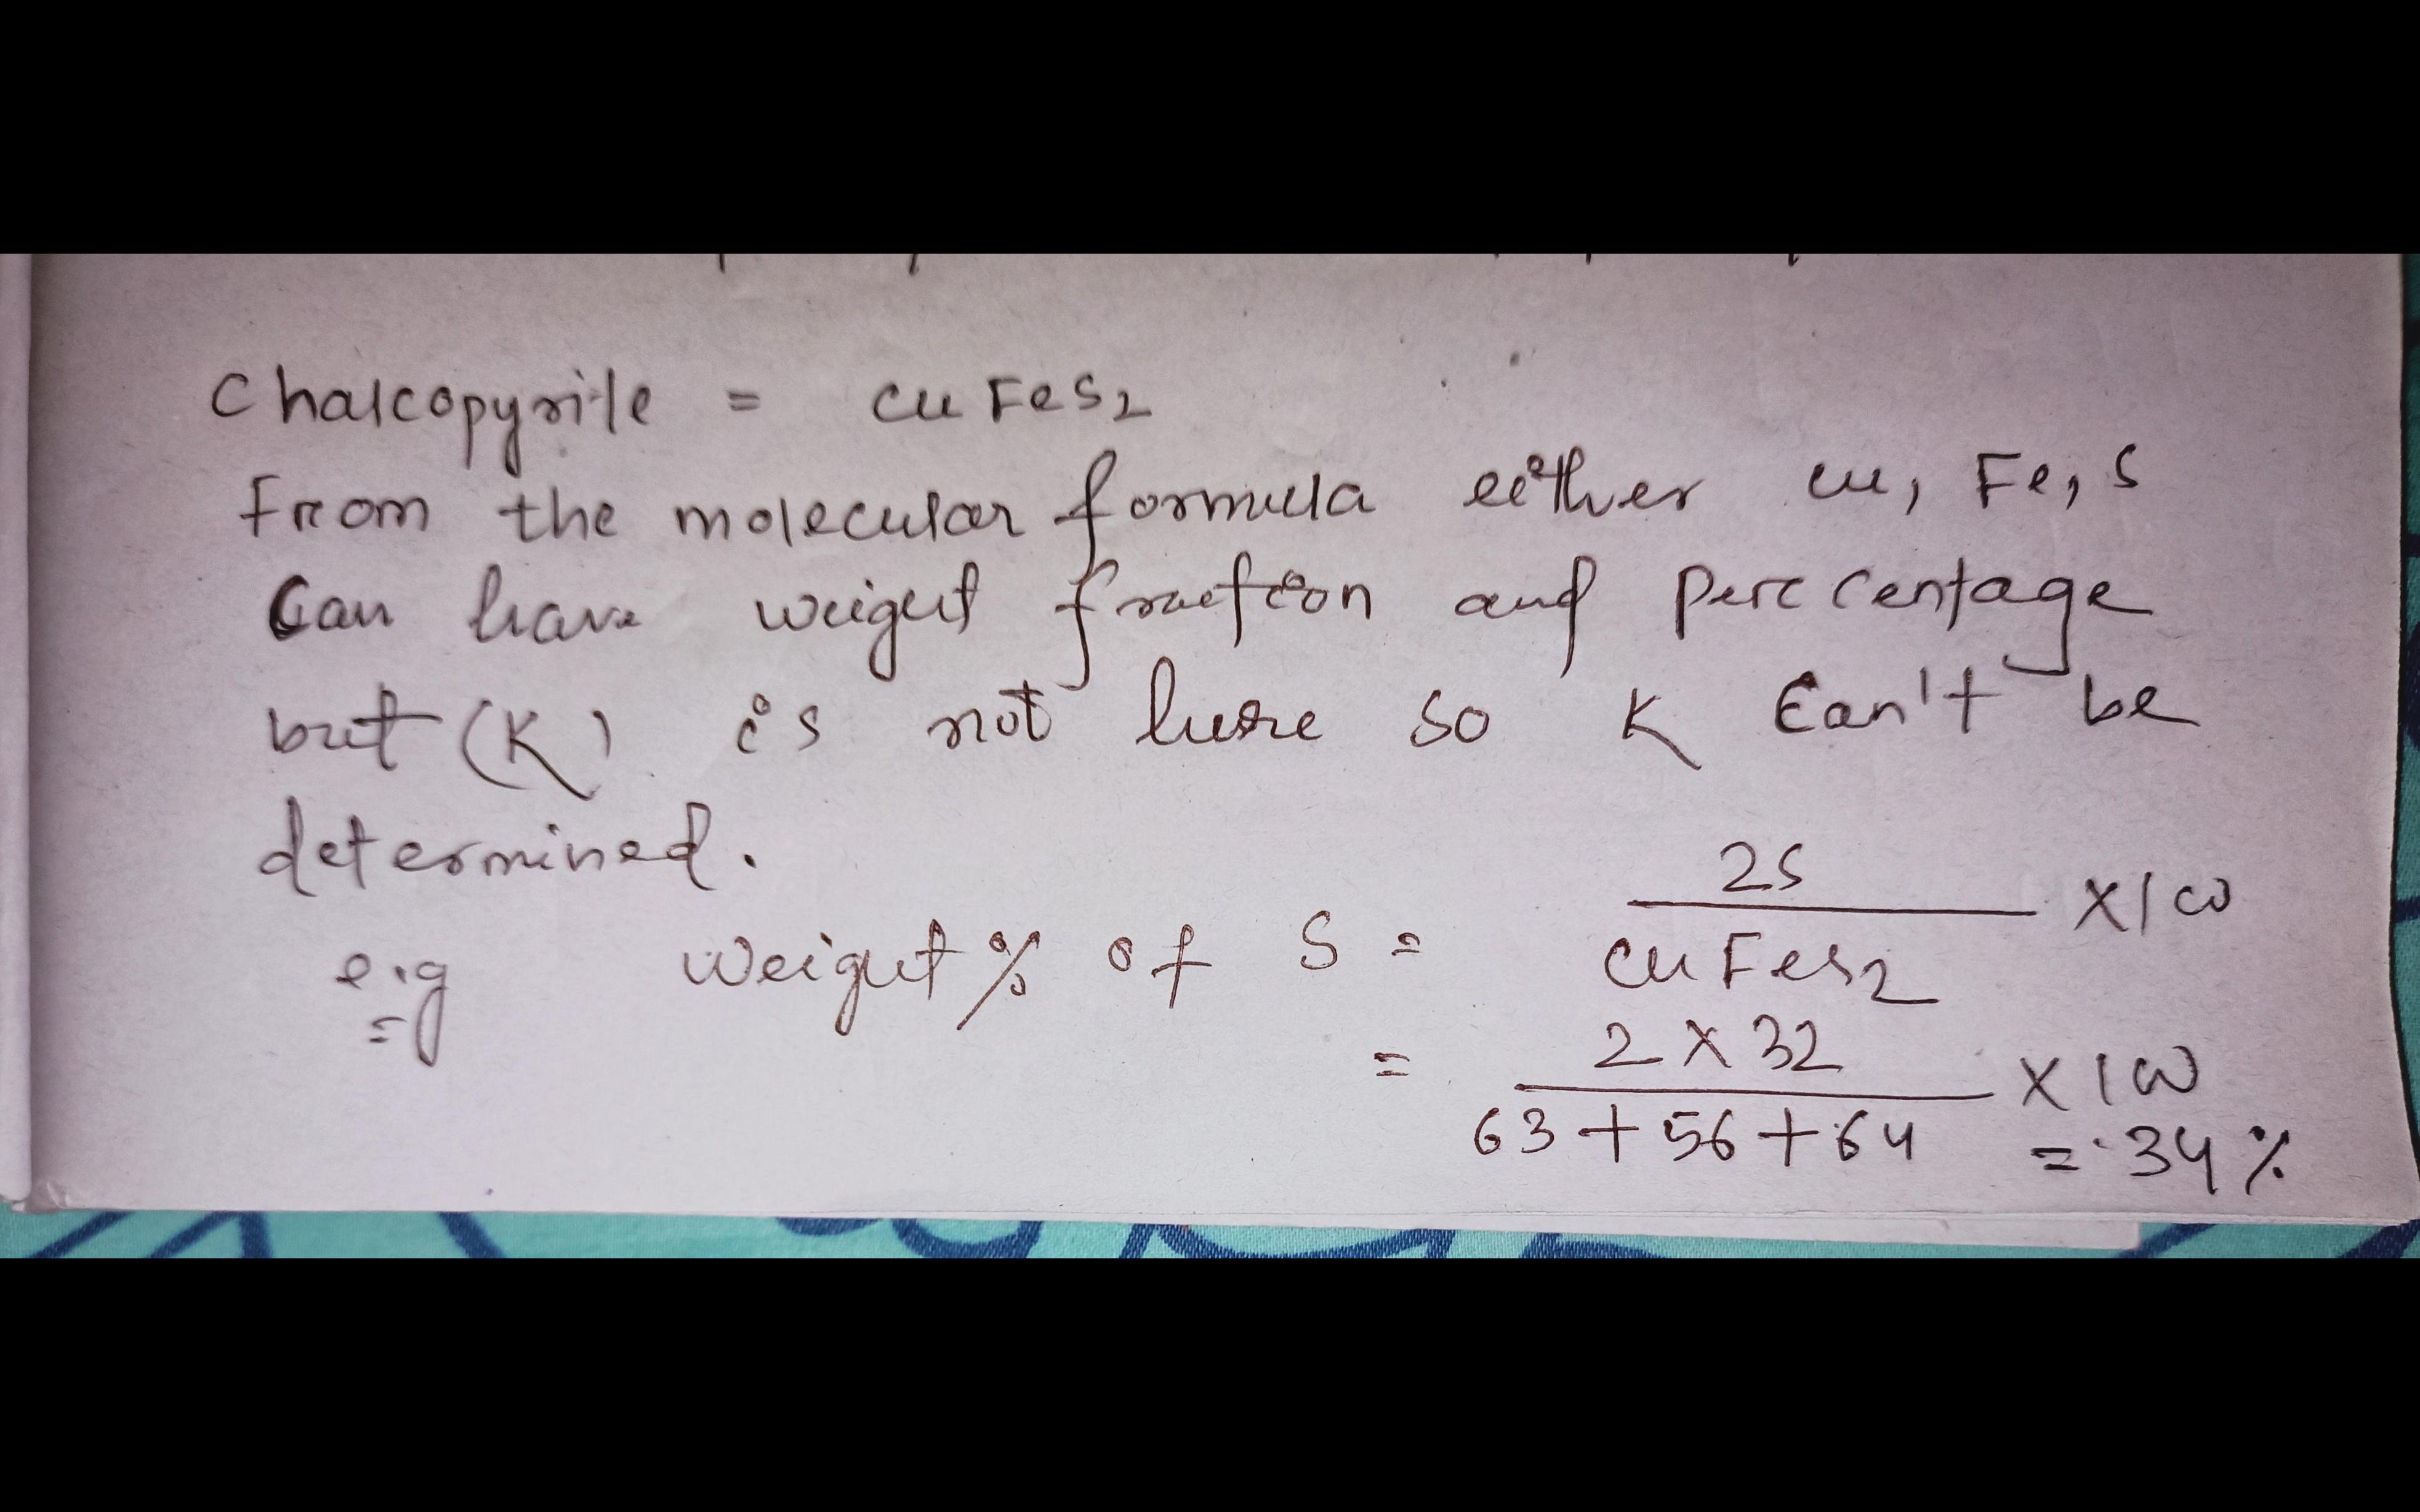 Chalcopyrite = CuFeS2
From the molecular formula either Cu, Fe, S
Can have weight fraction and perccentage
but (K) is not here so K Can't be
determined.
2S
e.g Weight % of S = ――― X100
CuFeS2
2 X 32
= ――― X100
63 + 56 + 64 = 34 %